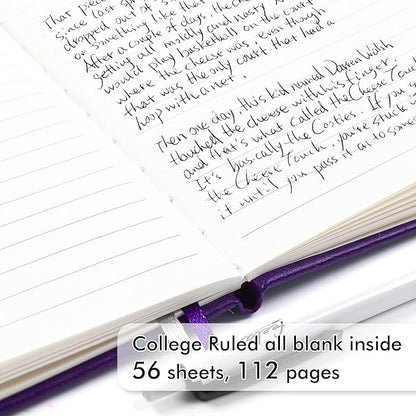 That
Since last
dropped out of
or something like that
After a couple of days, the
getting all moldy and nasty. No
would play basketball on the court
where the cheese was, even though
that was the only court that had a
hoop with a net.
Then one day, this kid named Darren Walsh
touched the cheese with his finger
and that's what called the Cheese Touch
It's basically the Cooties. If you g
the Cheese Touch, you're stuck
it until you pass it on to someo
College Ruled all blank inside
56 sheets, 112 pages